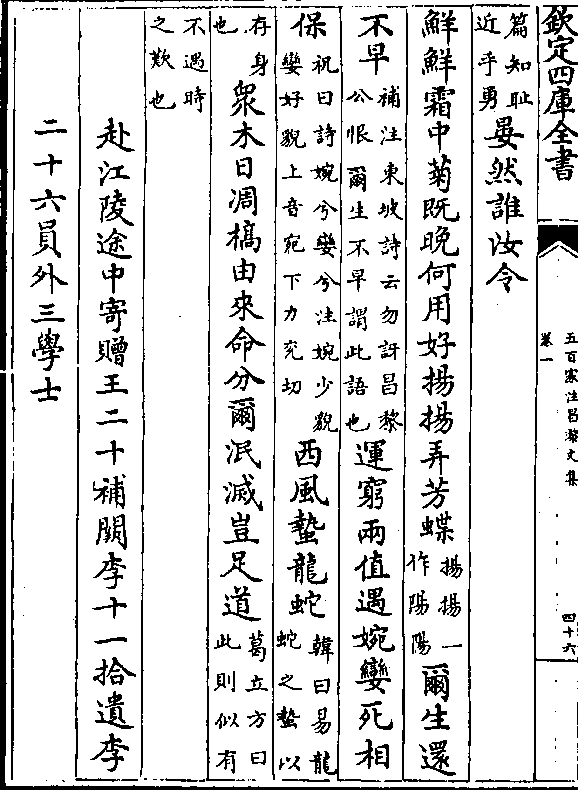 欽定四庫全書
五百家注昌黎文集
卷一
四十六
篇知耻近乎勇晏然誰汝令
鮮鮮霜中菊既晚何用好揚揚弄芳蝶揚揚一作陽陽爾生還
不早補注東坡詩云勿訝昌黎公恨爾生不早謂此語也運窮兩值遇婉孌死相
保祝曰詩婉兮孌兮注婉少貌孌好貌上音宛下力兖切西風蟄龍蛇韓曰易龍蛇之蟄以
存身也衆木日凋槁由來命分爾泯滅豈足道葛立方曰此則似有
不遇時之歎也
赴江陵途中寄贈王二十補闕李十一拾遺李
二十六員外三學士